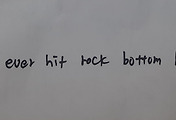 ever hit rock bottom